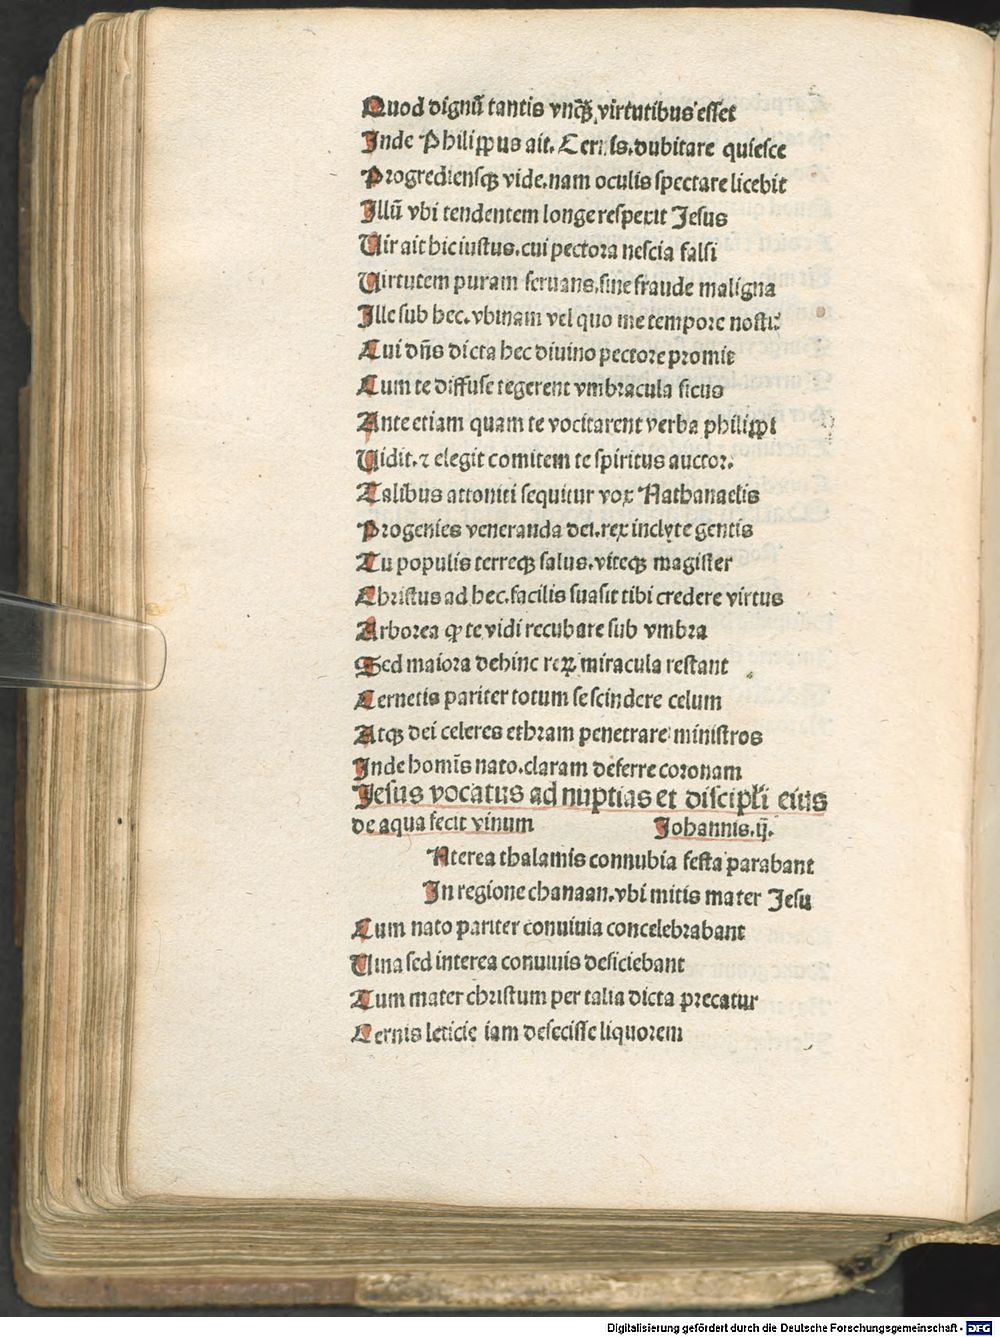 Quod dignū tantis vnqꝫ virtutibus esset
Inde Philippus ait. Cernis. dubitare quiesce
Progrediensqꝫ vide. nam oculis spectare licebit
Illū vbi tendentem longe respexit Jesus
Uir ait hic iustus. cui pectora nescia falsi
Uirtutem puram seruans. sine fraude maligna
Ille sub hec. vbinam vel quo me tempore nosti?
Cui dn̄s dicta hec diuino pectore promit
Cum te diffuse tegerent vmbracula ficus
Ante etiam quam te vocitarent verba philippi
Uidit. ⁊ elegit comitem te spiritus auctor.
Talibus attoniti sequitur vox Nathanaelis
Progenies veneranda dei. rex inclyte gentis
Tu populis terreqꝫ salus. viteqꝫ magister
Christus ad hec. facilis suasit tibi credere virtus
Arborea ꝙ te vidi recubare sub vmbra
Sed maiora dehinc reꝝ miracula restant
Cernetis pariter totum se scindere celum
Atqꝫ dei celeres ethram penetrare ministros
Inde homīs nato. claram deferre coronam
Jesus vocatus ad nuptias et discipl̄i eius
de aqua fecit vinum Johannis. ij.
Nterea thalamis connubia festa parabant
In regione chanaan. vbi mitis mater Jesu
Cum nato pariter conuiuia concelebrabant
Uina sed interea conuiuis deficiebant
Tum mater christum per talia dicta precatur
Cernis leticie iam defecisse liquorem
Digitalisierung gefördert durch die Deutsche Forschungsgemeinschaft - DFG